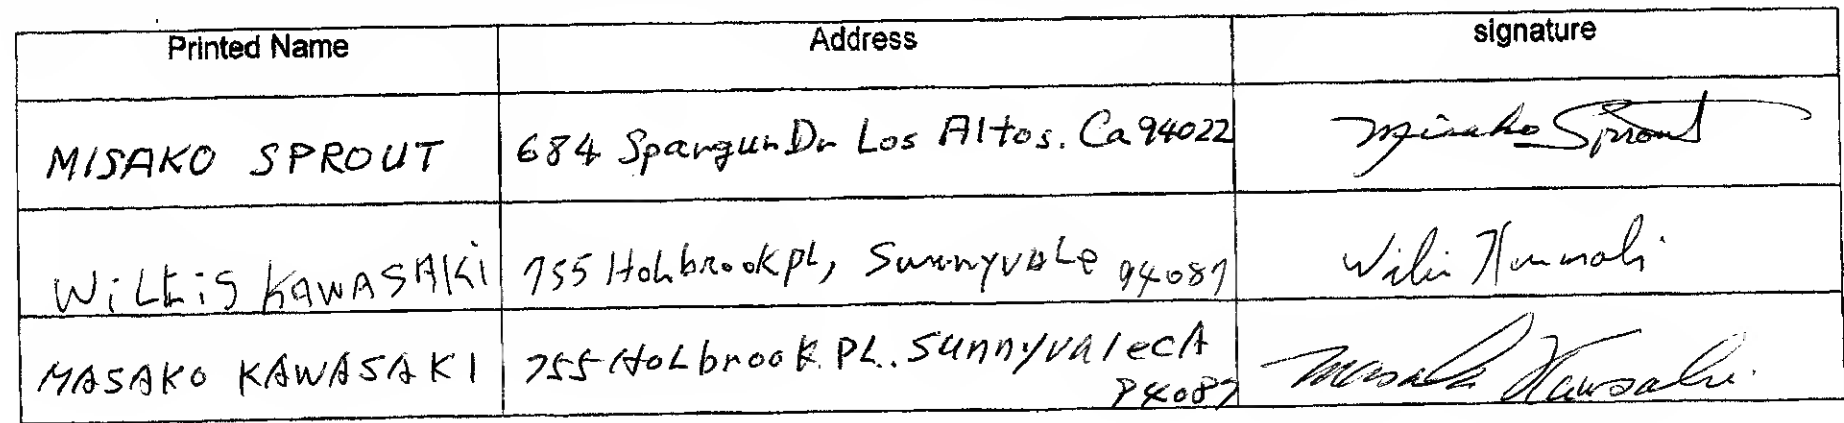 Printed Name Address signature
MISAKO SPROUT 684 Spargur Dr Los Altos. Ca 94022 Misako Sprout
WiLLiS KAWASAKi 755 Holbrook pL, SunnyvaLe 94087
MASAKO KAWASAKI 755 HoLbrook PL. SunnyvalecA 94087 Masako Kawasaki